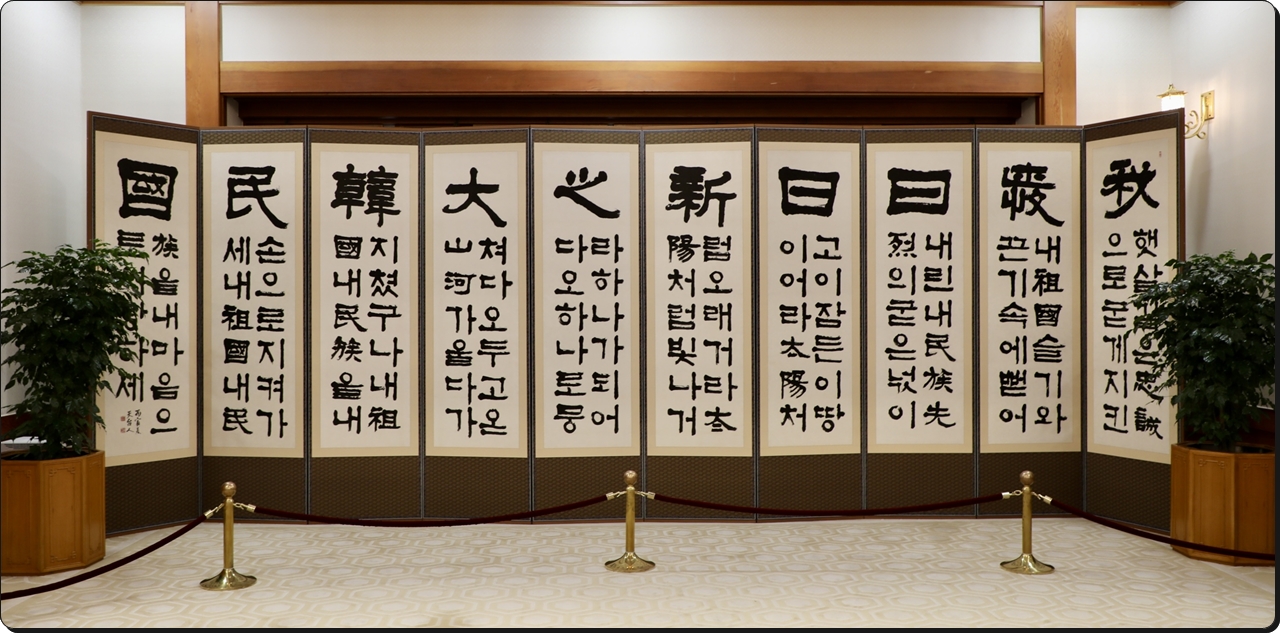 秋
햇살은忠誠
으로굳게지킨
내祖國슬기와
끈기속에뻗어
日
내린내民族先
烈의굳은넋이
日
고이잠든이땅
이어라太陽처
新
럼오래거라太
陽처럼빛나거
心
라하나가되어
다오하나로뭉
大
쳐다오두고온
山河가울다가
韓
지쳤구나내祖
國내民族을내
民
손으로지켜가
세내祖國내民
國
族을내마음으
세